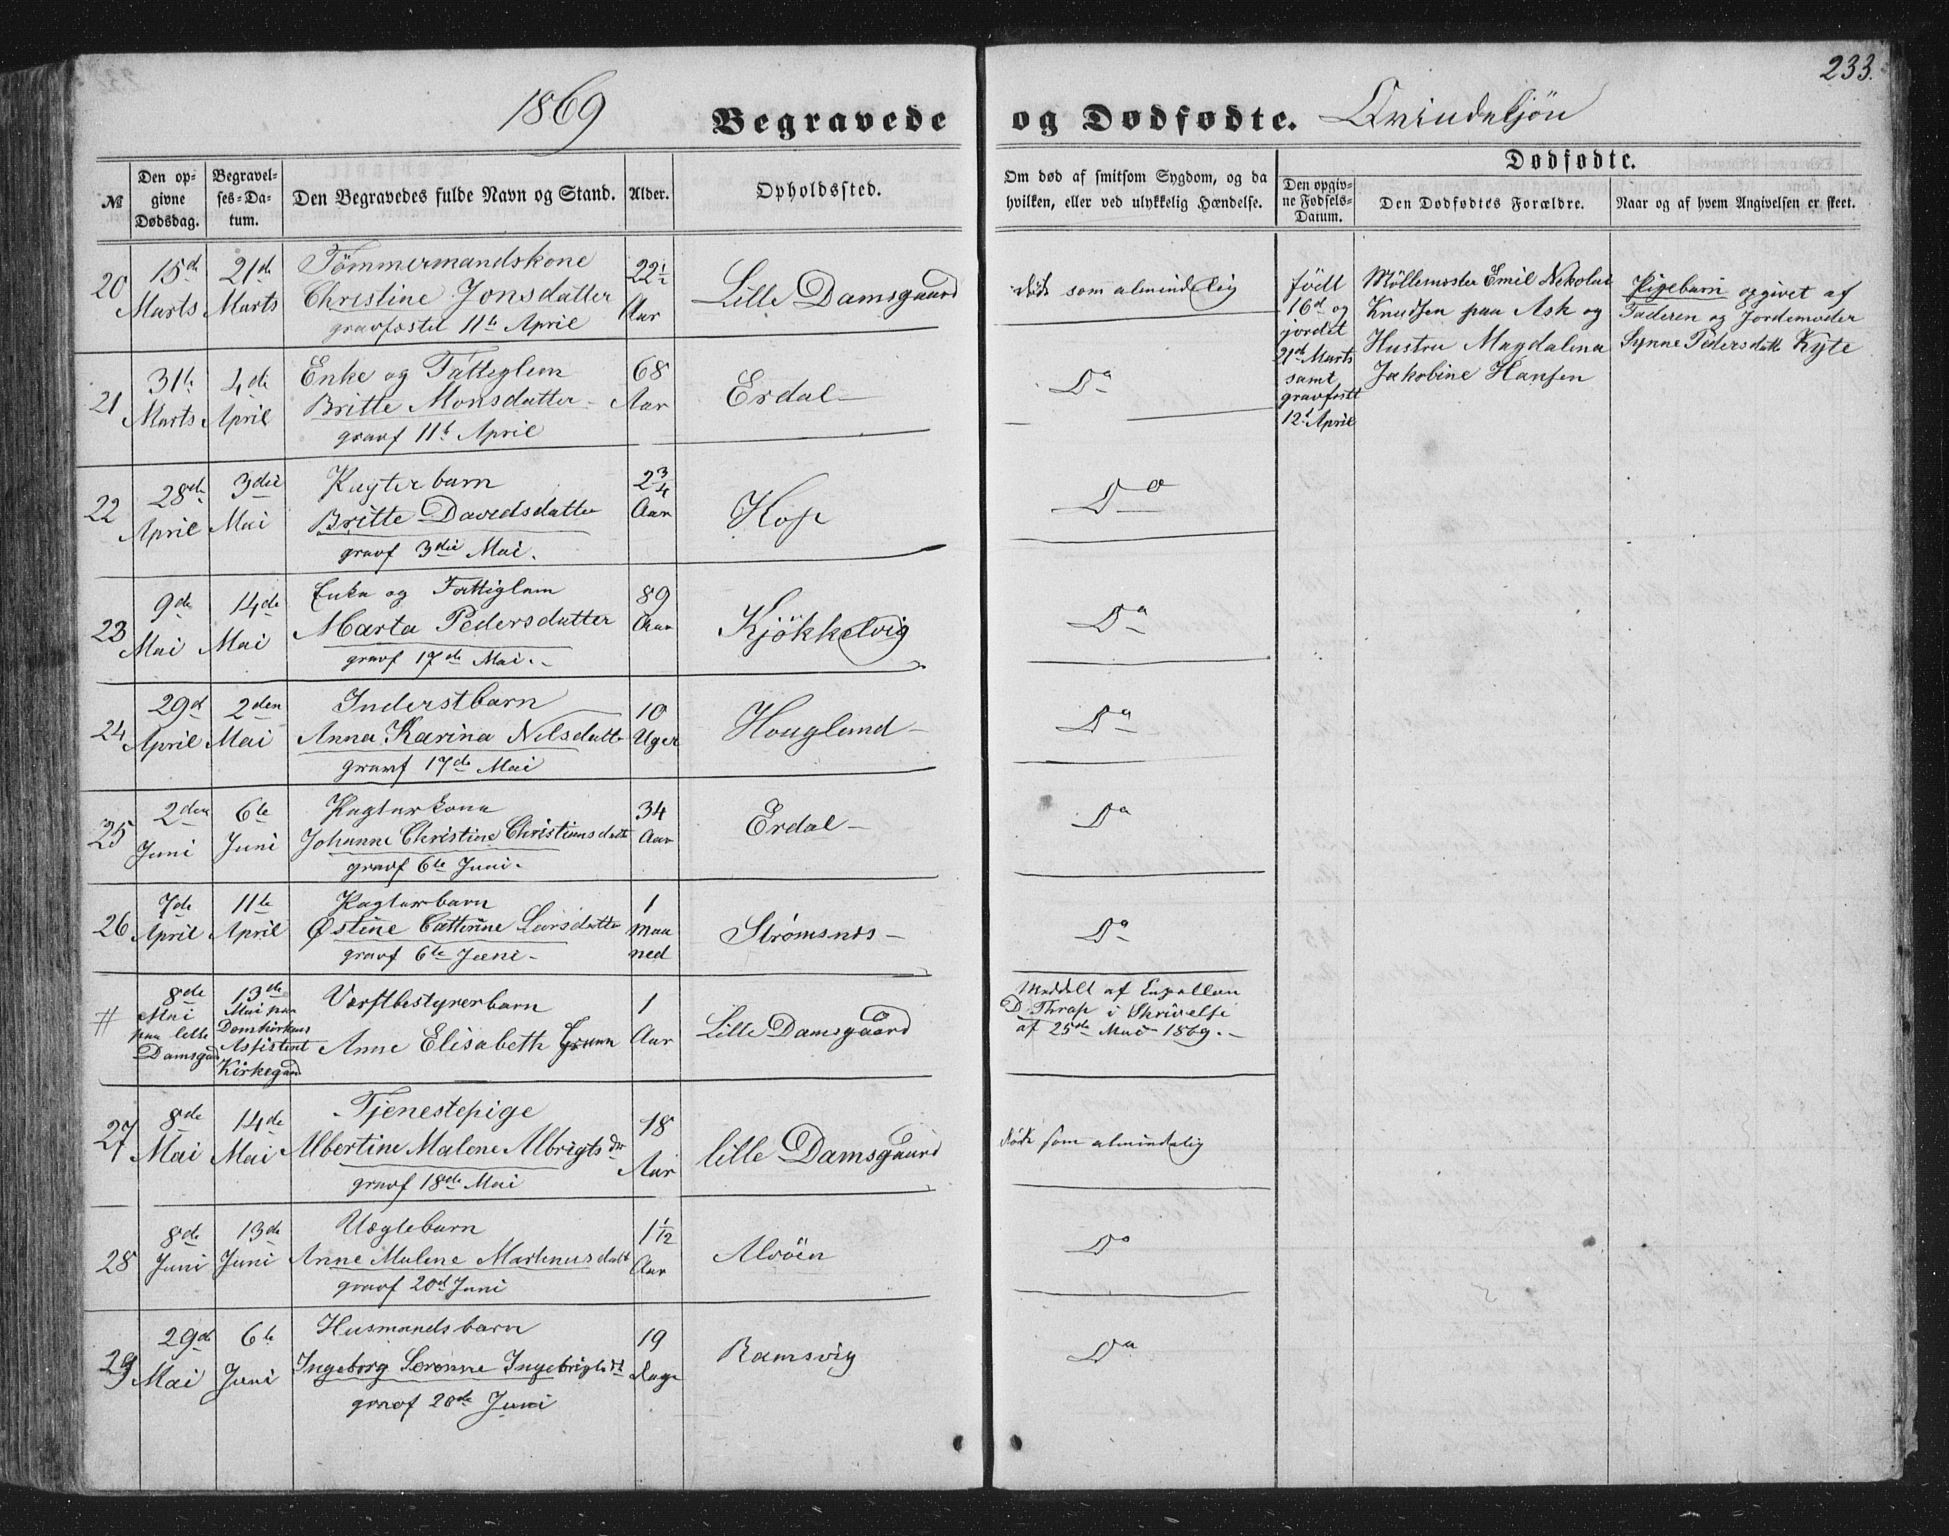 233.
1869 Begravede og Dødfødte. Qvindekjön
№
Den op-
givne
Dødsdag.
Begravel-
ses-Da-
tum.
Den Begravedes fulde Navn og Stand.
Alder.
Opholdssted.
Om død af smitsom Sygdom, og da
hvilken, eller ved ulykkelig Hændelse.
Dødfødte.
Den opgiv-
ne Fødsels-
Datum.
Den Dødfødtes Forældre.
Naar og af hvem Angivelsen er skeet.
20
15de
Marts
21de
Marts
Tømmermandskone
Christine Jonsdatter
gravfæstet 11te April
22½
Aar
Lille Damsgaard
död som almindelig
födt
16d og
jordet
21de Marts
samt
gravfæstet
12t April
Möllemester Emil Nikolai
Knudsen paa Ask og
Hustru Magdalena
Jakobine Hansen
Pigebarn opgivet af
Faderen og Jordemoder
Synne Pedersdatt Kyte
21
31te
Marts
4de
April
Enke og Fattiglem
Britte Monsdatter
gravf 11t April
68
Aar
Erdal
Do
22
28de
April
3die
Mai
Britte Davidsdatter
gravf 3die Mai.
2¾
Aar
Hop
Do
23
9de
Mai
14de
Mai
Enke og Fattiglem
Marta Pedersdatter
gravf 17de Mai.
89
Aar
Kjökkelvig
Do
24
29d
April
2den
Mai
Inderstbarn
Anna Karina Nilsdatter
gravf 17de Mai
10
Uger
Houglund
Do
25
2den
Juni
6te
Juni
Johanne Christine Christiansdatt
gravf 6te Juni.
34
Aar
Erdal
Do
26
7de
April
11te
April
Østine Cattrine Larsdatter
gravf 6te Juni
1
Maa
ned
Strømsnes
Do
#
8de
Mai
paa lille
Damsgaard
13de
Mai paa
Domkirkens
Assistent
Kirkegaard
Værftbestyrerbarn
Anne Elisabeth
1
Aar
Lille Damsgaard
Meddelt af
D. Thrap i Skrivelse
af 25de Mai 1869.
27
8de
Mai
14de
Mai
Tjenestepige
Albertine Malene Albrigtsdtr
gravf 18de Mai
18
Aar
lille Damsgaard
död som almindelig
28
8de
Juni
13de
Juni
Uægtebarn
Anne Malene Martinusdatt
gravf 20d Juni
1 1/12
Aar
Alvöen
Do
29
29de
Mai
6te
Juni
Husmandsbarn
Ingeborg Serenne Ingebrigtsdt
gravf 20de Juni
19
Dage
Ramsvig
Do